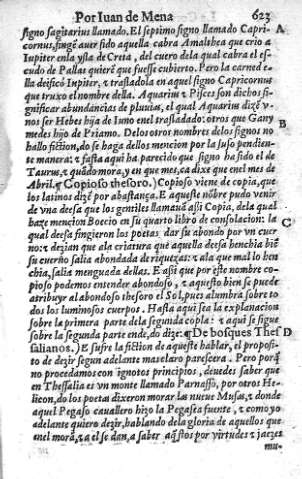 Por Iuan de Mena 623
signo sagitarius llamado. El septimo signo llamado Capri- A
cornus, fingē auer sido aquella cabra Amalthea que crio a
Iupiter enla ysla de Creta, del cuero dela qual cabra el es-
cudo de Pallas quierē que fuesse cubierto. Pero la carne de e-
lla deificò Iupiter, & trasladola en aquel signo Capricornus
que truxo el nombre della. Aquariu & Pisces son dichos si-
gnificar abundancias de pluuias, el qual Aquarius dizē v-
nos ser Hebes hija de Iuno enel trasladado: otros que Gany B
medes hijo de Priamo. Delos otros nombres delos signos no
hallo fictiõ, do se haga dellos mencion por la suso pendien-
te manera: & fasta aqui ha parecido que signo ha sido el de
Taurus, & quãdo mora, y en que mes, ca dixe que enel mes de
Abril. ¶ Copioso thesoro.) Copioso viene de copia, que
los latinos dizē por abastança. E aqueste nõbre pudo venir
de vna deesa que los gentiles llamauã assi Copia, dela qual
haze mencion Boecio en su quarto libro de consolacion: la C
qual deesa fingieron los poetas dar su abondo por vn cuer
no: & dezian que ala criatura que aquella deesa henchia biē
su cuerño salia abondada de riquezas: & ala que mal lo hen
chia, salia menguada dellas. E assi que por este nombre co-
pioso podemos entender abondoso, & aquesto bien se puede
atribuyr al abondoso thesoro el Sol, pues alumbra sobre to
dos los luminosos cuerpos. Hasta aqui sea la explanacion
sobre la primera parte dela segunda copla: & aqui se sigue
sobre la segunda parte ende, do dize: ¶ De bosques Thes D
salianos.) E sufre la fiction de aqueste hablar, el proposi-
to de dezir segun adelante mas claro parescera. Pero porq̃
no procedamos con ignotos principios, deuedes saber que
en Thessalia es vn monte llamado Parnasso, por otros He-
licon, do los poetas dixeron morar las nueue Musas, & donde
aquel Pegaso cauallero hizo la Pegasea fuente, & como yo
adelante quiero dezir, hablando dela gloria de aquellos que
enel morã, & a el se dan, a saber aq̃stos por virtudes & jaezes
mu-